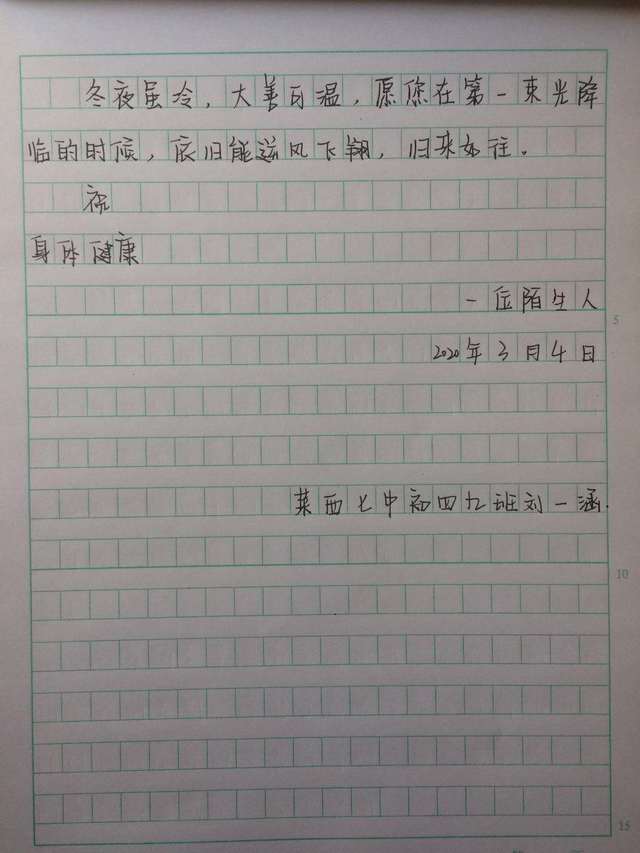 冬夜虽冷，大善可温，愿您在第一束光降
临的时候，依旧能逆风飞翔，归来如往.
祝
身体健康
一位陌生人
5
2020年3月4日
莱西七中初四九班刘一涵.
10
15